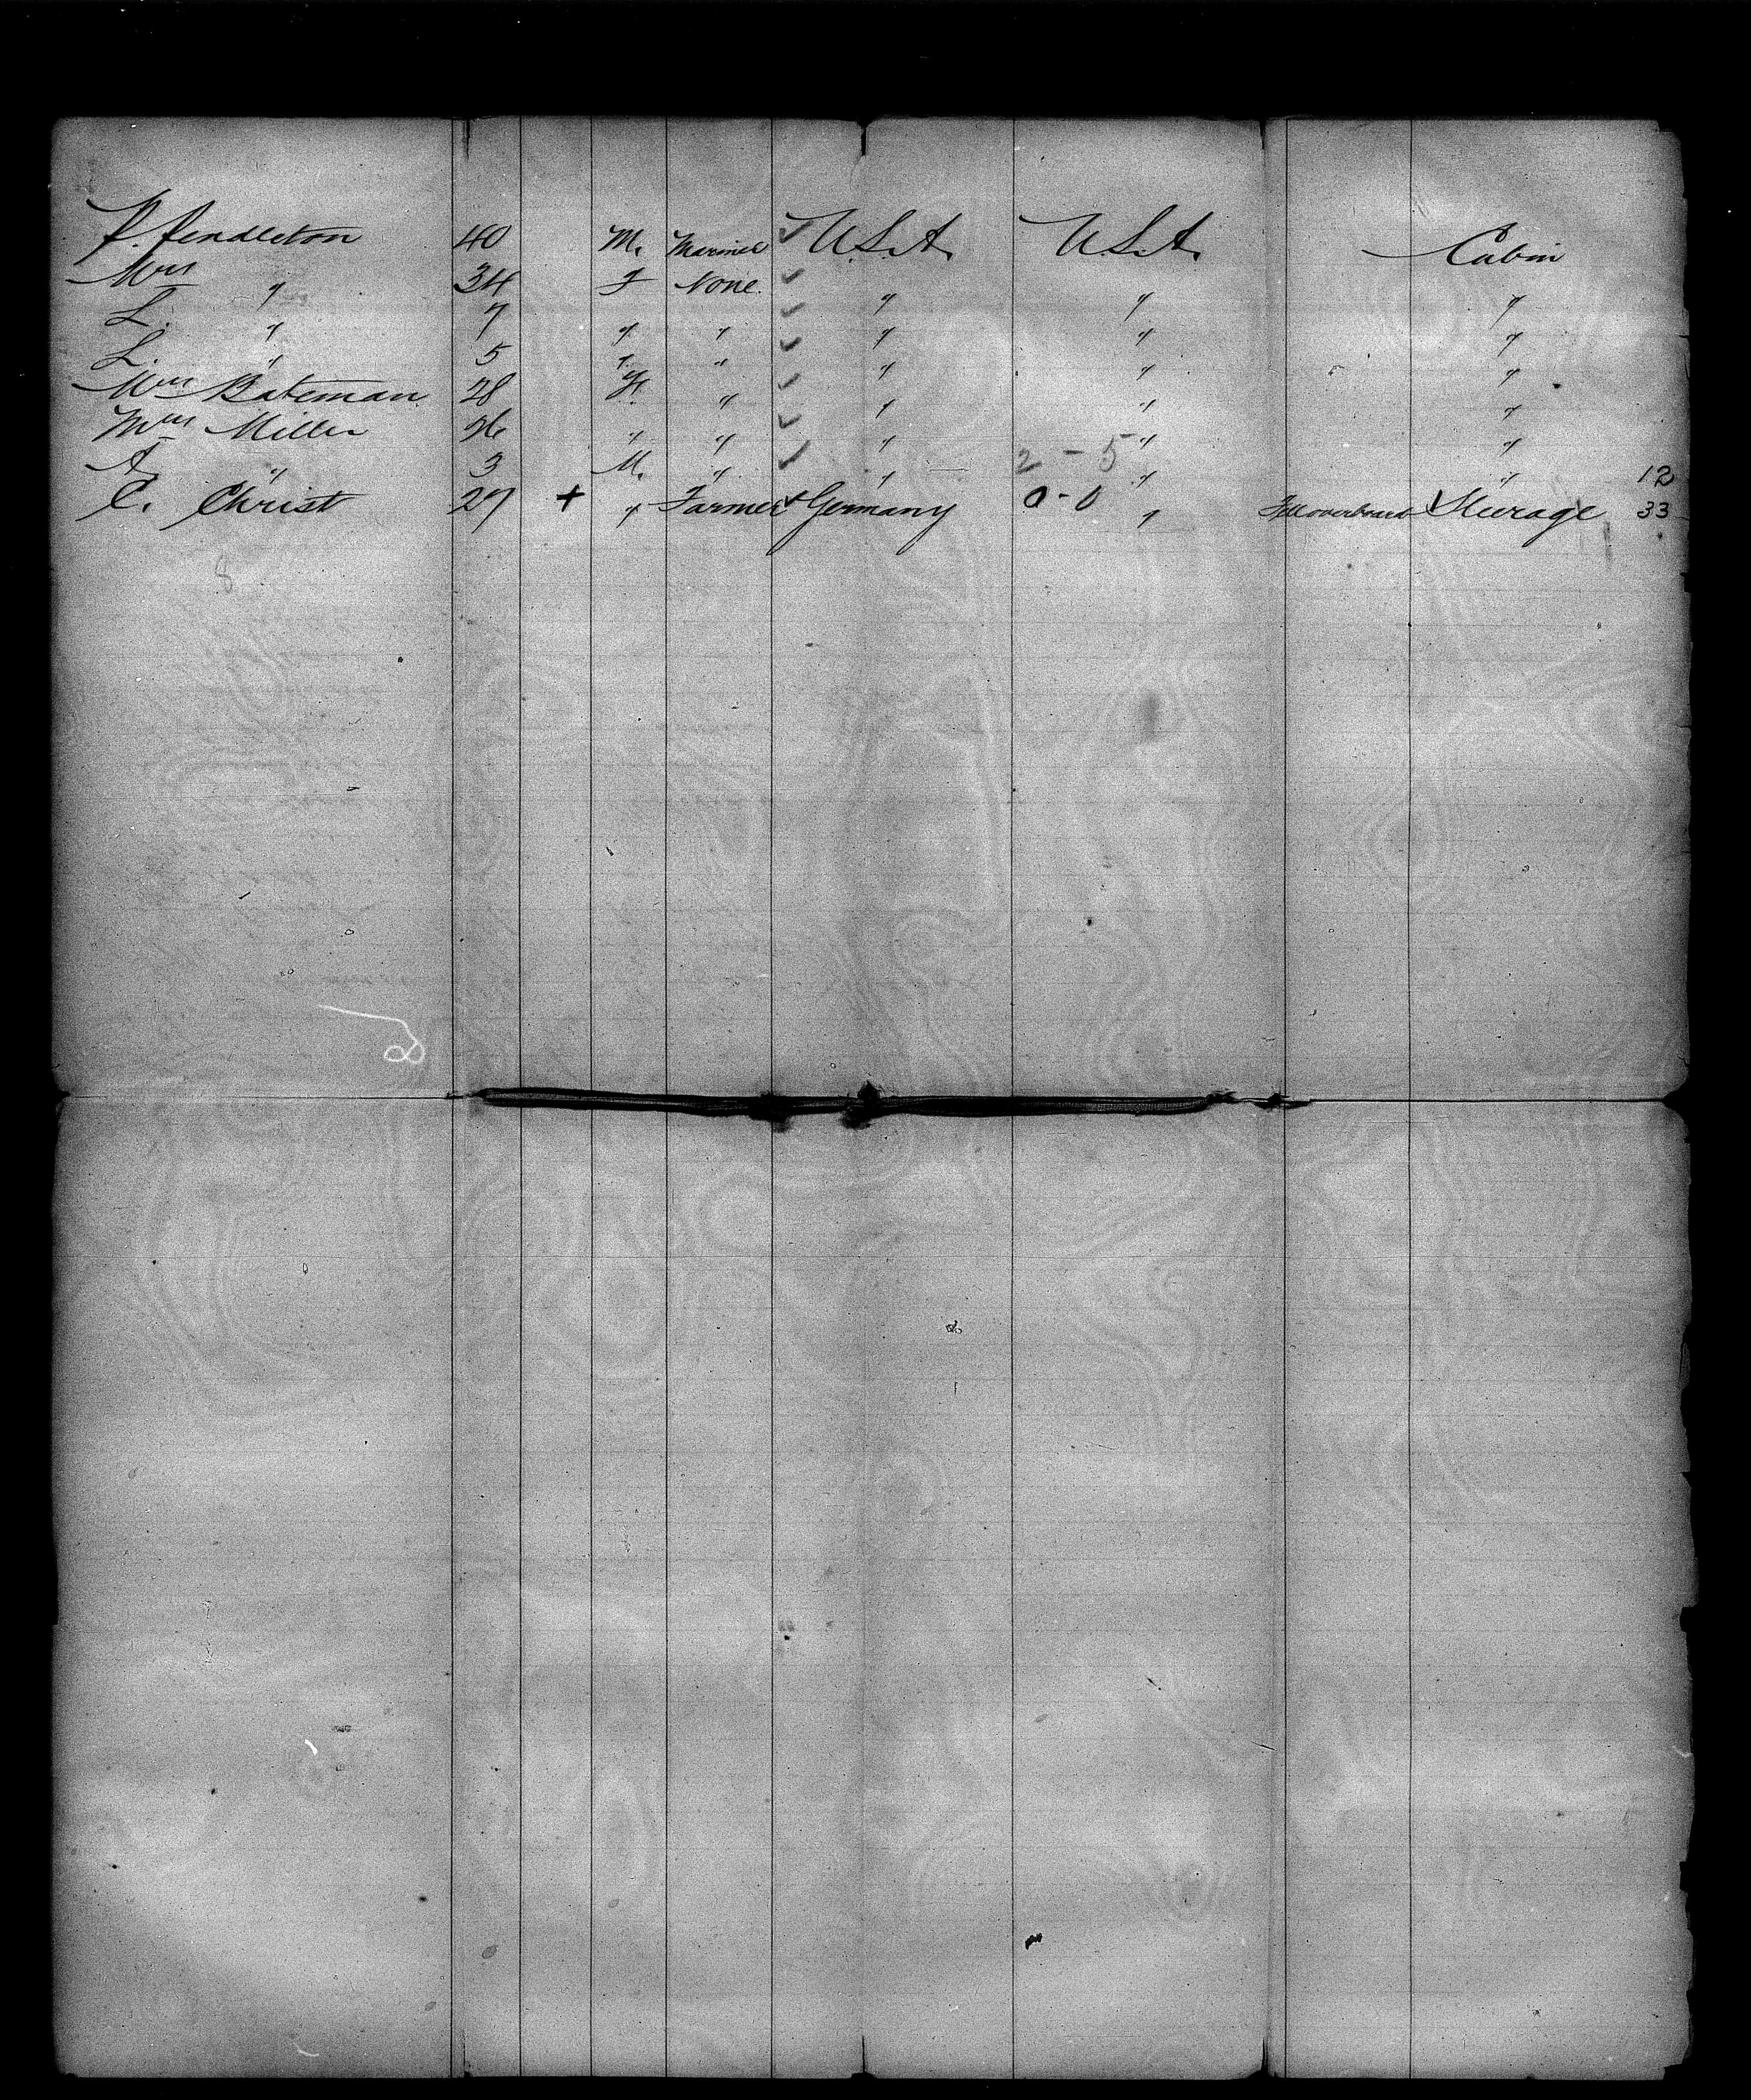 P. Pendleton 40 M. Mariner U.S.A. U.S.A. Cabin
Mrs " 34 F None. " " "
L. " 7 " " " " "
L. " 5 " " " " "
Mrs Bateman 28 F. " " " "
Mrs Miller 26 " " " " "
A. " 3 M. " " 2 - 5 " " 12
C. Christ 27 + " Farmer + Germany 0 - 0 " Fell overboard Steerage 33
8